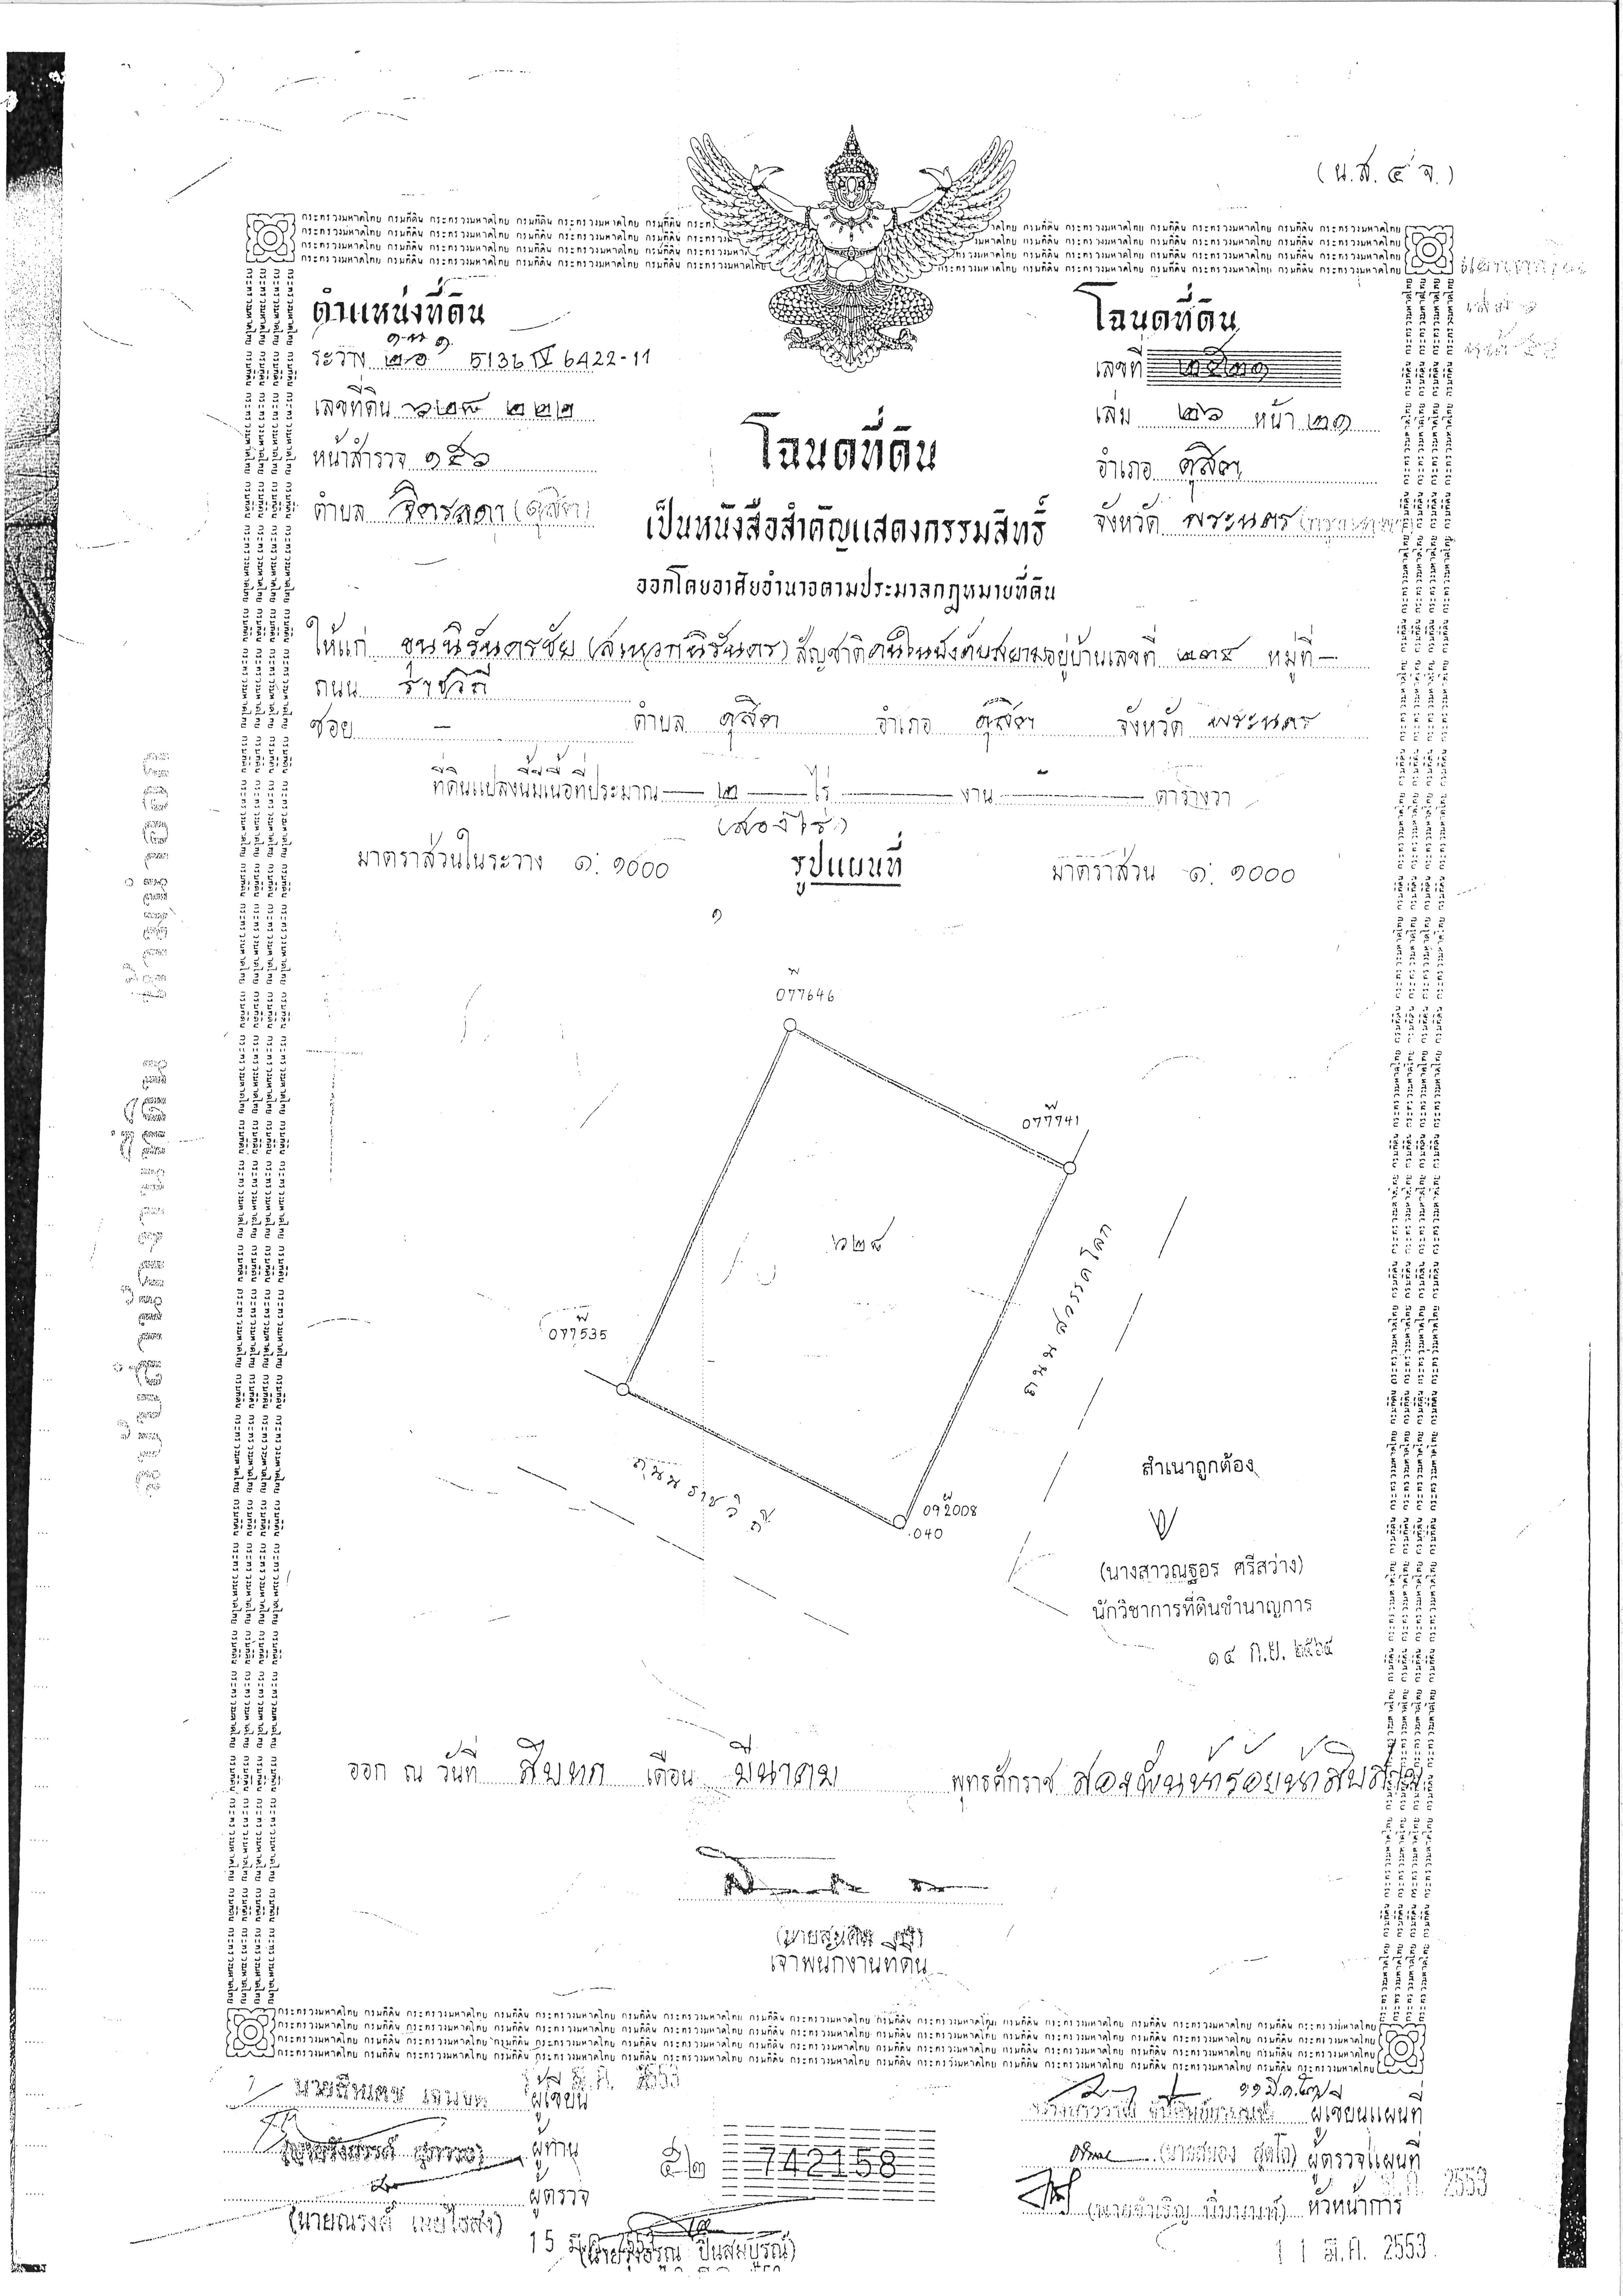 (น.ส. ๔ จ.)
ตำแหน่งที่ดิน
ระวาง 5136 IV 6422-11
เลขที่ดิน ๖๒๘ ๒๒๒
หน้าสำรวจ ๑๕๖
ตำบล จิตรลดา (ดุสิต)
โฉนดที่ดิน
เลขที่ ๒๕๒๑
เล่ม ๒๖ หน้า ๒๑
อำเภอ ดุสิต
จังหวัด พระนคร (กรุงเทพฯ)
โฉนดที่ดิน
เป็นหนังสือสำคัญแสดงกรรมสิทธิ์
ออกโดยอาศัยอำนาจตามประมวลกฎหมายที่ดิน
ให้แก่ ขุนนิรันดรชัย (สเหวกนิรันดร) สัญชาติ คนในบังคับสยาม อยู่บ้านเลขที่ ๒๓๔ หมู่ที่ –
ถนน ราชวิถี
ซอย – ตำบล ดุสิต อำเภอ ดุสิต จังหวัด พระนคร
ที่ดินแปลงนี้มีเนื้อที่ประมาณ ๒ ไร่ งาน ตารางวา
(สองไร่)
มาตราส่วนในระวาง ๑:๑๐๐๐ รูปแผนที่ มาตราส่วน ๑:๑๐๐๐
พ
077646
พ
077741
๖๒๘
พ
077535
ถนนสวรรคโลก
ถนนราชวิถี
พ
092008
.040
สำเนาถูกต้อง
(นางสาวณฐอร ศรีสว่าง)
นักวิชาการที่ดินชำนาญการ
๑๔ ก.ย. ๒๕๖๔
ฉบับสำนักงานที่ดิน ห้ามนำออก
ออก ณ วันที่ สิบหก เดือน มีนาคม พุทธศักราช สองพันห้าร้อยห้าสิบสาม
เจ้าพนักงานที่ดิน
กระทรวงมหาดไทย กรมที่ดิน
ผู้เขียน
ผู้ทาน
ผู้ตรวจ
(นายณรงค์ เผยไธสง)
15 มี.ค. 2553
(นายรุ่งอรุณ ปิ่นสมบูรณ์)
๕๒ 742158
ผู้เขียนแผนที่
(นายสนอง สุดโต) ผู้ตรวจแผนที่
หัวหน้าการ
11 มี.ค. 2553